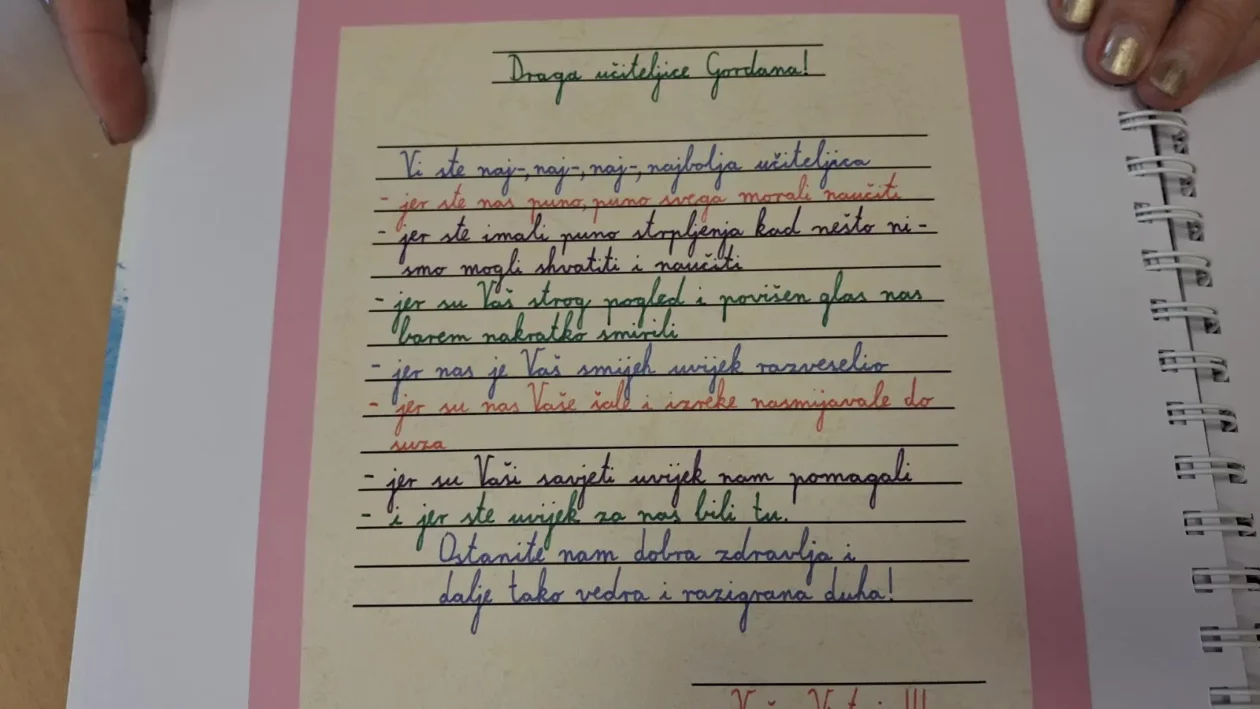 Draga učiteljice Gordana!
Vi ste naj-, naj-, naj-, najbolja učiteljica
- jer ste nas puno, puno svega morali naučiti
- jer ste imali puno strpljenja kad nešto ni-
smo mogli shvatiti i naučiti
- jer su Vaš strog pogled i povišen glas nas
barem nakratko smirili
- jer nas je Vaš smijeh uvijek razveselio
- jer su nas Vaše šale i izreke nasmijavale do
suza
- jer su Vaši savjeti uvijek nam pomagali
- i jer ste uvijek za nas bili tu.
Ostanite nam dobra zdravlja i
dalje tako vedra i razigrana duha!